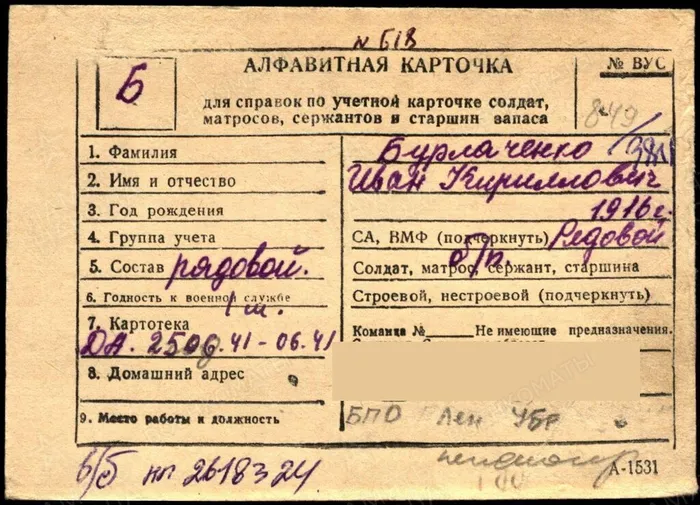 N 618
Б
АЛФАВИТНАЯ КАРТОЧКА
№ ВУС
для справок по учетной карточке солдат,
матросов, сержантов и старшин запаса
849
1. Фамилия
Бурлаченко
2. Имя и отчество
Иван Кириллович
3. Год рождения
1916 г.
4. Группа учета
СА, ВМФ (подчеркнуть) Рядовой
5. Состав рядовой.
б/п.
Солдат, матрос, сержант, старшина
6. Годность к военной службе
Строевой, нестроевой (подчеркнуть)
7. Картотека
Команда № Не имеющие предназначения.
ДА. 25.06.41 - 06.41
8. Домашний адрес
9. Место работы и должность
БПО Лен
в/б нп 2618324
А-1531